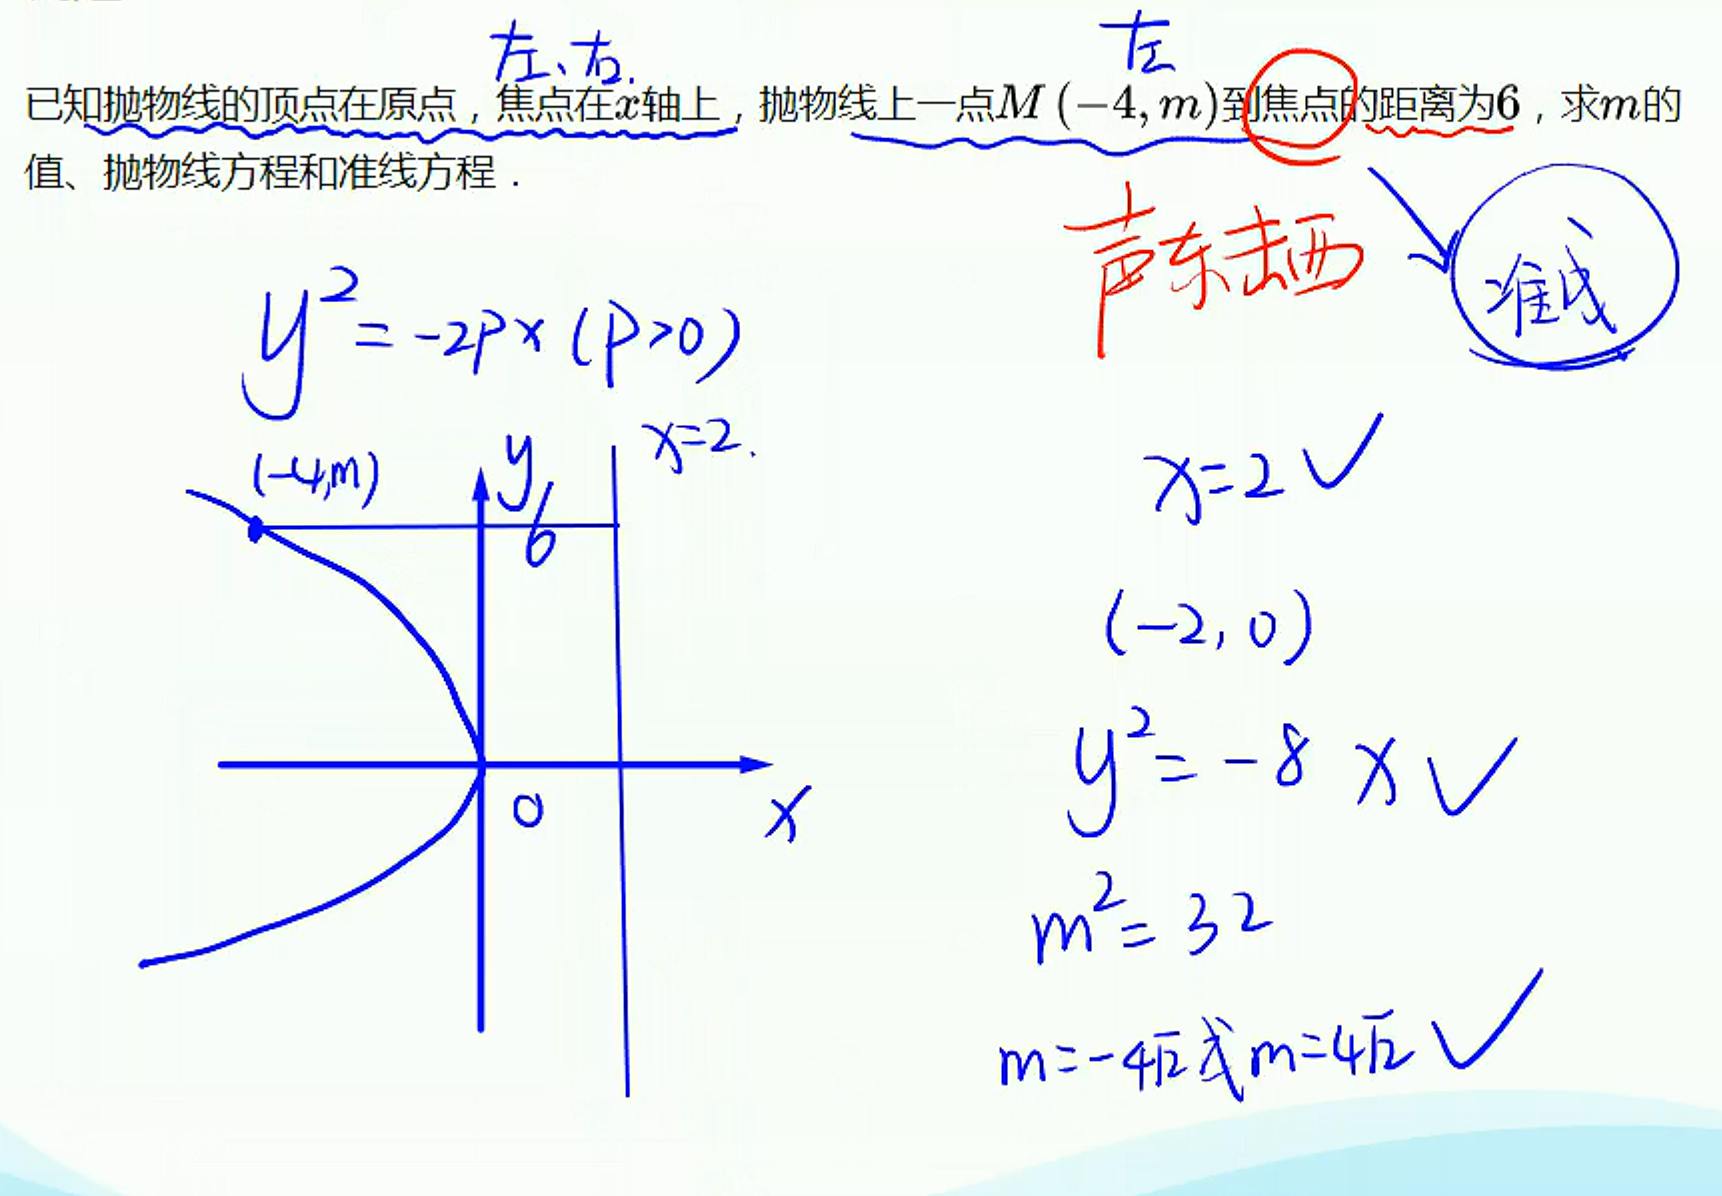 左、右.
左
已知抛物线的顶点在原点，焦点在x轴上，抛物线上一点M（−4, m)到焦点的距离为6，求m的
值、抛物线方程和准线方程．
声东击西
准线
y²=-2px (p>0)
x=2.
y
(-4,m)
6
0
x
x=2✓
(-2,0)
y²=-8x✓
m²=32
m=-4√2或m=4√2✓